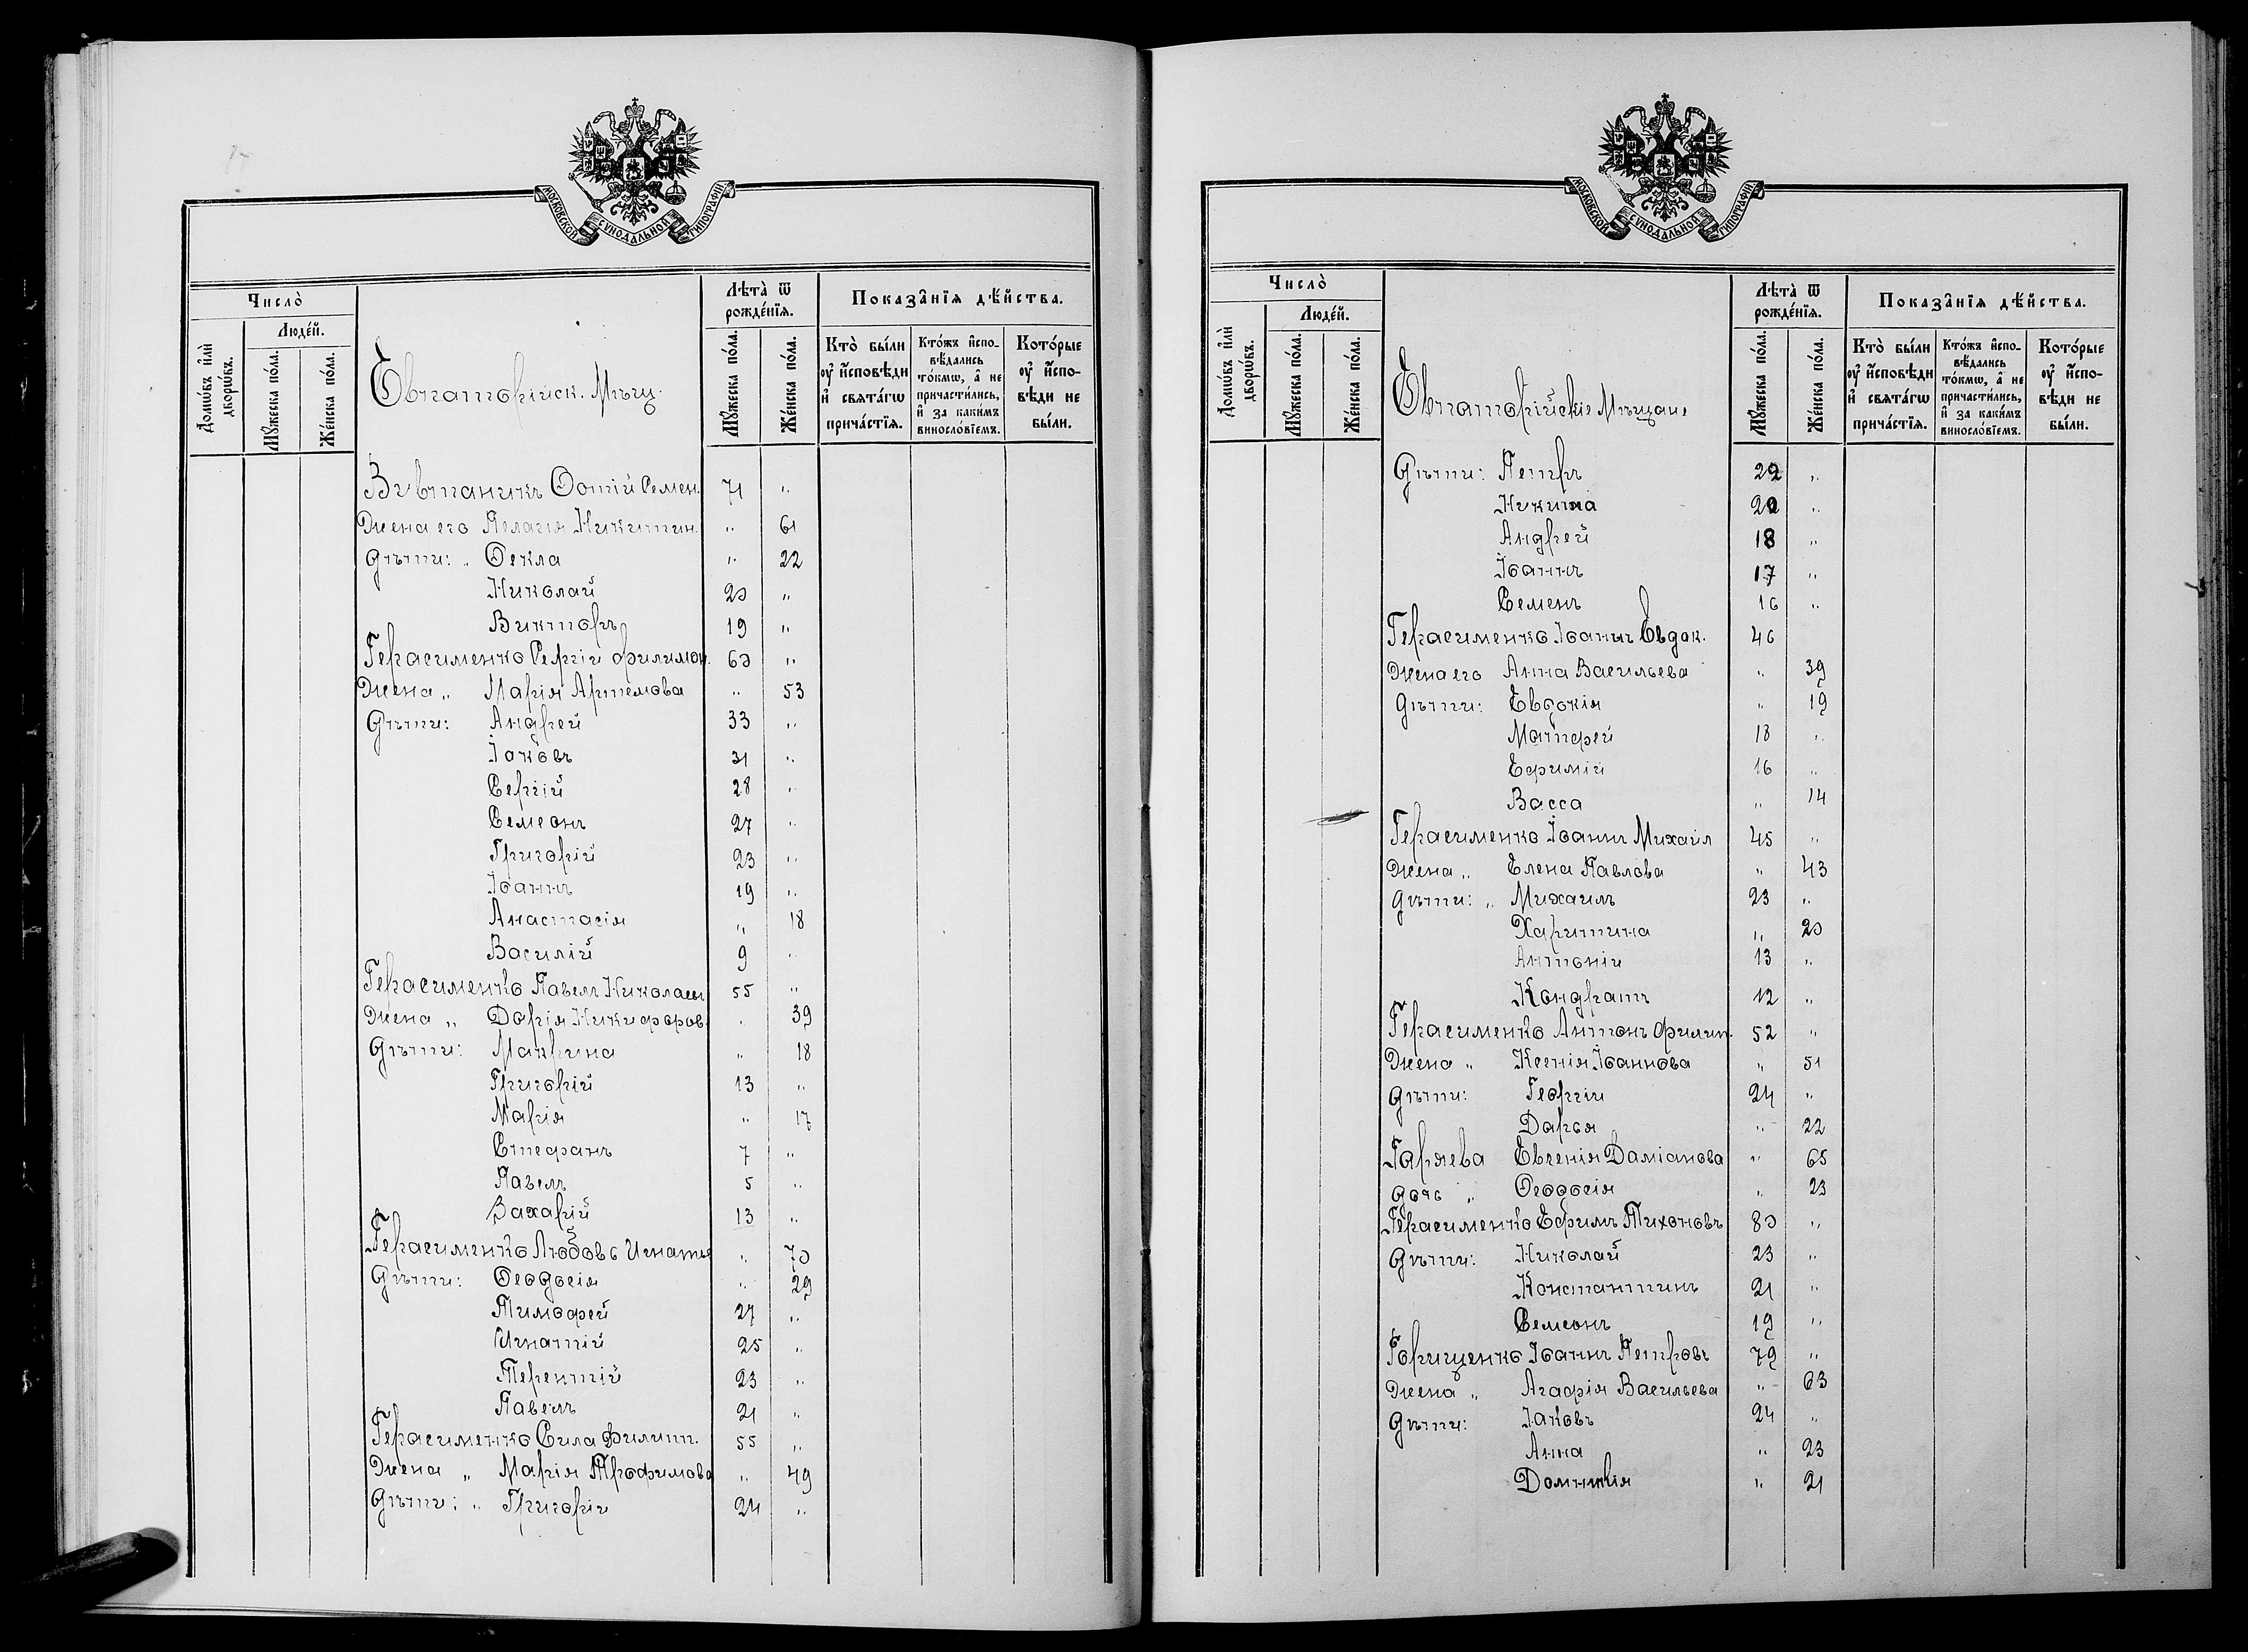 МОСКОВСКОЙ СѴНОДАЛЬНОЙ ТИПОГРАФІИ
Число̀
Людéй.
Домѡ́въ и҆лѝ дворѡ́въ.
Мꙋ́жеска по́ла.
Же́нска по́ла.
Евпаторійск. Мѣщ.
Лѣта̀ ѿ рожде́нїѧ.
Мꙋ́жеска по́ла.
Же́нска по́ла.
Показа̑нїѧ дѣ́йства.
Кто̀ бы́ли ᲂу҆ и҆сповѣди и҆ свята́гѡ прича́стїѧ.
Кто́жъ и҆спо-вѣдались то́кмѡ, а҆ не причасти́лись, и҆ за каки́мъ винословїемъ.
Кото́рые ᲂу҆ и҆спо-вѣди не бы́ли.
Ѳотій Семен. 71 „
Жена его Пелагія Никитин. „ 61
Дѣти: „ Ѳекла „ 22
Николай 20 „
Викторъ 19 „
Герасименко Сергій Филимон. 60 „
Жена „ Марія Артемова „ 53
Дѣти: Андрей 33 „
Іаковъ 31 „
Сергій 28 „
Семеонъ 27 „
Григорій 23 „
Іоаннъ 19 „
Анастасія „ 18
Василій 9 „
Герасименко Павелъ Николаевъ 55 „
Жена „ Дарія Никифоров. „ 39
Дѣти: Макрина „ 18
Григорій 13 „
Марія „ 17
Стефанъ 7 „
Павелъ 5 „
Захарій 13 „
Герасименко Любовь Игнатьева „ 70
Дѣти: Ѳеодосія „ 29
Тимофей 27 „
Игнатій 25 „
Терентій 23 „
Павелъ 21 „
Герасименко Сила Филип. 55 „
Жена „ Марія Трофимова „ 49
Дѣти: „ Григорій 24 „
МОСКОВСКОЙ СѴНОДАЛЬНОЙ ТИПОГРАФІИ
Число̀
Людéй.
Домѡ́въ и҆лѝ дворѡ́въ.
Мꙋ́жеска по́ла.
Же́нска по́ла.
Евпаторійскіе Мѣщане
Лѣта̀ ѿ рожде́нїѧ.
Мꙋ́жеска по́ла.
Же́нска по́ла.
Показа̑нїѧ дѣ́йства.
Кто̀ бы́ли ᲂу҆ и҆сповѣди и҆ свята́гѡ прича́стїѧ.
Кто́жъ и҆спо-вѣдались то́кмѡ, а҆ не причасти́лись, и҆ за каки́мъ винословїемъ.
Кото́рые ᲂу҆ и҆спо-вѣди не бы́ли.
Дѣти: Петръ 22 „
Никита 20 „
Андрей 18 „
Іоаннъ 17 „
Семенъ 16 „
Герасименко Іоаннъ Евдок. 46
Жена его Анна Васильева „ 39
Дѣти: Евдокія „ 19
Матфей 18 „
Ефимій 16 „
Васса „ 14
Герасименко Іоаннъ Михаил 45 „
Жена „ Елена Павлова „ 43
Дѣти: „ Михаилъ 23 „
Харитина „ 20
Антоній 13 „
Кондратъ 12 „
Герасименко Антонъ Филип. 52 „
Жена „ Ксенія Іоаннова „ 51
Дѣти: Георгій 24 „
Дарья „ 22
Гаряева Евгенія Даміанова „ 65
дочь „ Ѳеодосія „ 23
Герасименко Ефимъ Тихоновъ 80 „
Дѣти: Николай 23 „
Константинъ 21 „
Семеонъ 19 „
Горищенко Іоаннъ Петровъ 79 „
Жена „ Агафія Васильева „ 63
Дѣти: Іаковъ 24 „
Анна „ 23
Домникія „ 21